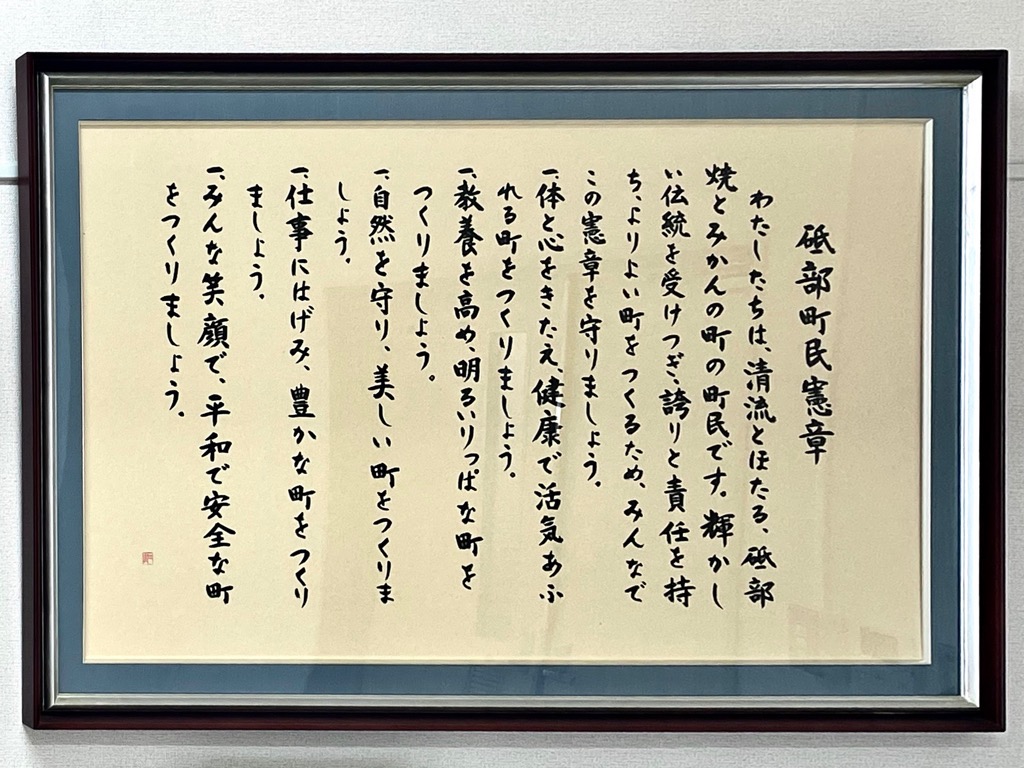 砥部町民憲章
わたしたちは、清流とほたる、砥部
焼とみかんの町の町民です。輝かし
い伝統を受けつぎ、誇りと責任を持
ち、よりよい町をつくるため、みんなで
この憲章を守りましょう。
一、体と心をきたえ、健康で活気あふ
れる町をつくりましょう。
一、教養を高め、明るいりっぱな町を
つくりましょう。
一、自然を守り、美しい町をつくりま
しょう。
一、仕事にはげみ、豊かな町をつくり
ましょう。
一、みんな笑顔で、平和で安全な町
をつくりましょう。